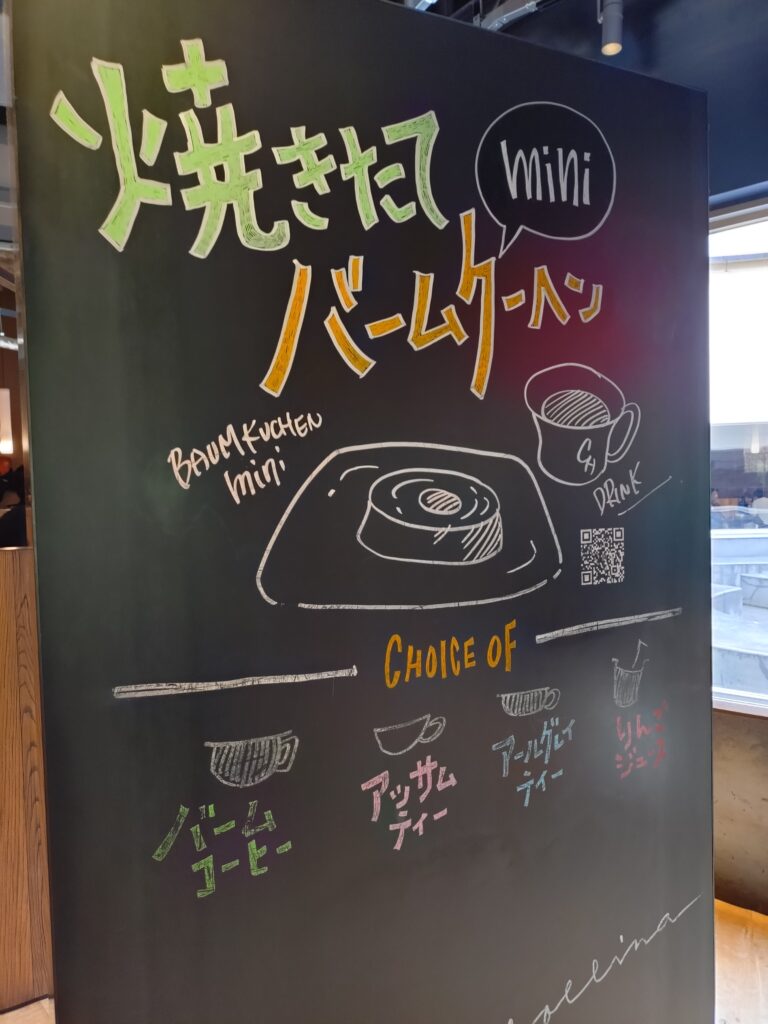 焼きたて
mini
バームクーヘン
BAUMKUCHEN
mini
DRINK
CHOICE OF
バーム
コーヒー
アッサム
ティー
アールグレイ
ティー
りんご
ジュース